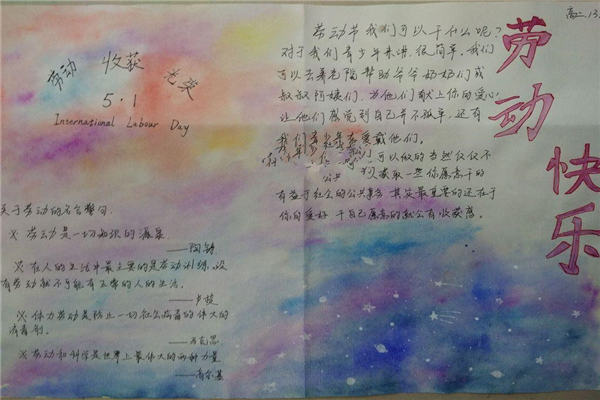 高二.13.
劳动 收获 光荣
5·1
International Labour Day
关于劳动的名言警句:
※ 劳动是一切知识的源泉.
——陶铸
※ 在人的生活中最主要的是劳动训练,没
有劳动就不可能有正常的人的生活.
——卢梭
※ 体力劳动是防止一切社会病毒的伟大的
消毒剂.
——马克思
※ 劳动和科学是世界上最伟大的两种力量
——高尔基
劳动节我们可以干什么呢?
对于我们青少年来讲,很简单,我们
可以去养老院帮助爷爷奶奶们或
叔叔阿姨们,为他们献上你的爱心,
让他们感觉到自己并不孤单,还有
我们青少年在爱戴他们.
可以做的当然仅仅不
一些你愿意干的
有益于社会的公共事务,其实最重要的还在于
你的爱好,干自己愿意的就会有收获感。
劳动快乐